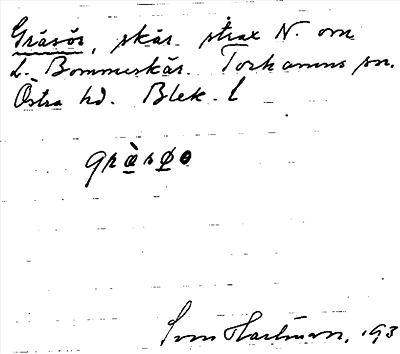 Gräsör, skär. strax N. om
L. Bommeskär. Torhamns sn.
Östra hd. Blek. l
gräsøo
Sven Hartman, 193